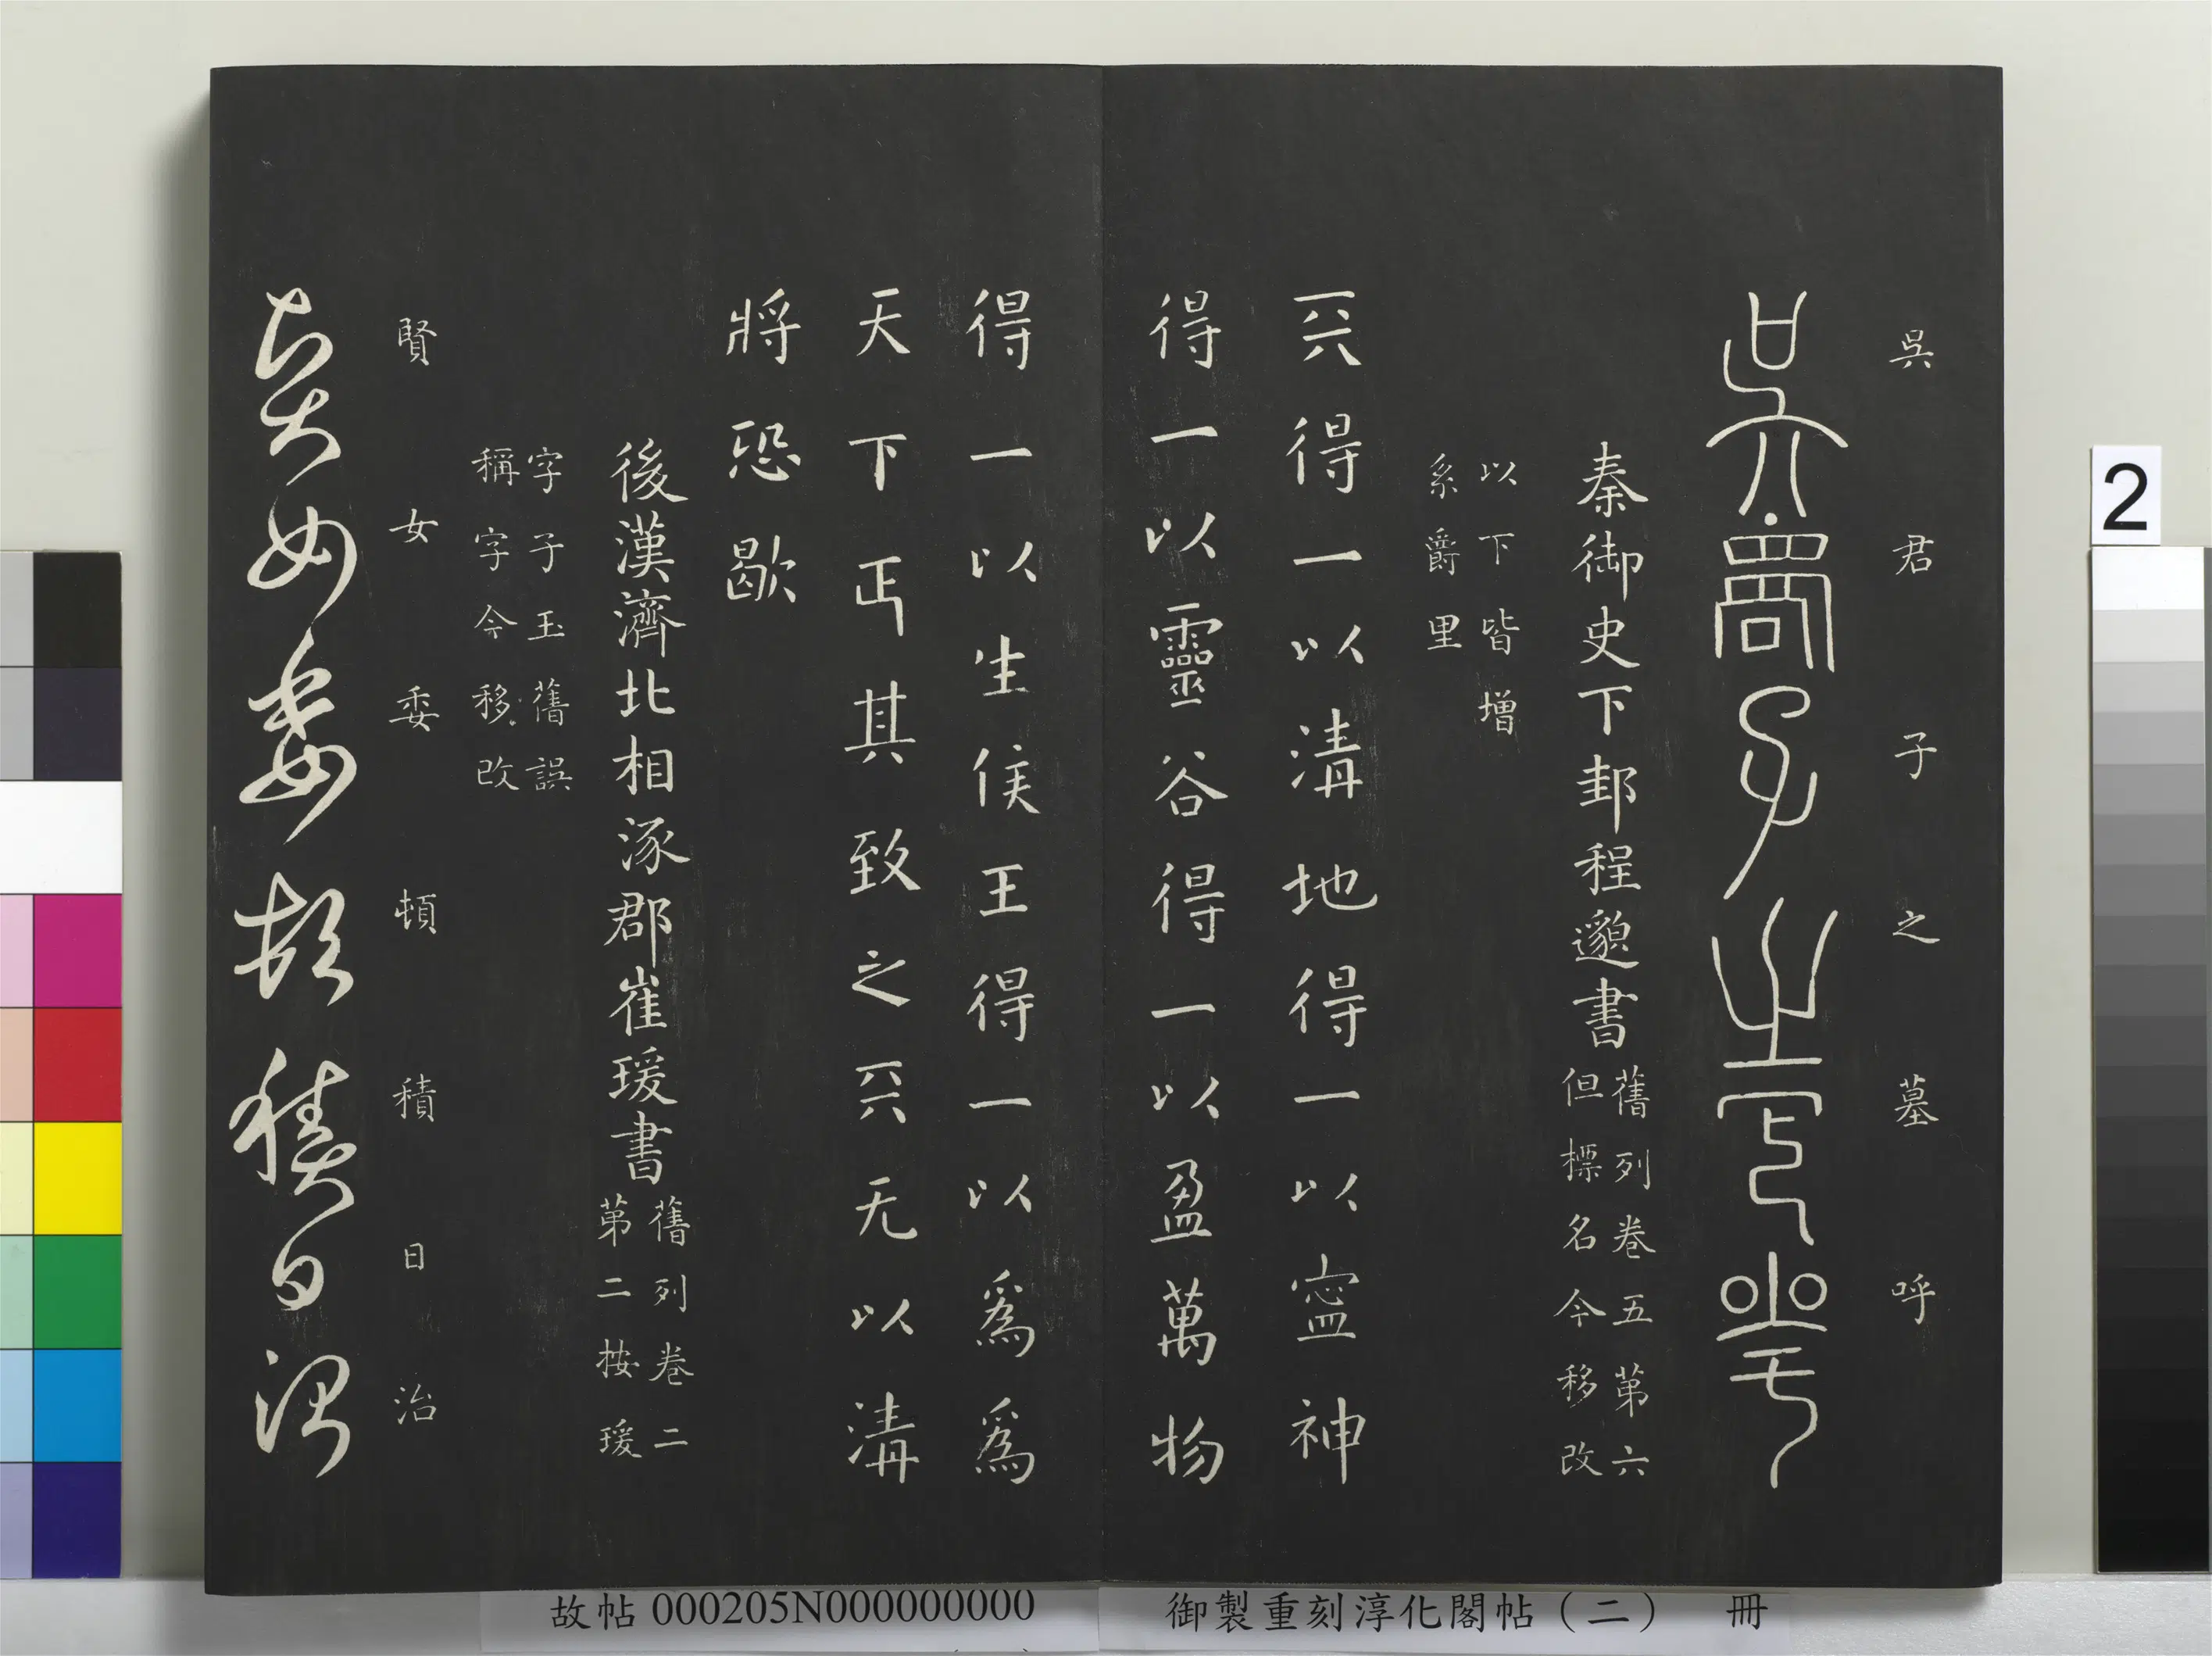 吳君子之墓呼
吳君子之墓呼
秦御史下邽程邈書
舊列卷五第六
但標名今移改
以下皆增
系爵里
天得一以淸地得一以寍神
得一以靈谷得一以盈萬物
得一以生侯王得一以爲爲
天下正其致之天无以淸
將恐歇
後漢濟北相涿郡崔瑗書
舊列卷二
第二按瑗
字子玉舊誤
稱字子今移改
賢女委頓積日治
賢女委頓積日治
2
故帖000205N000000000
御製重刻淳化閣帖（二） 冊